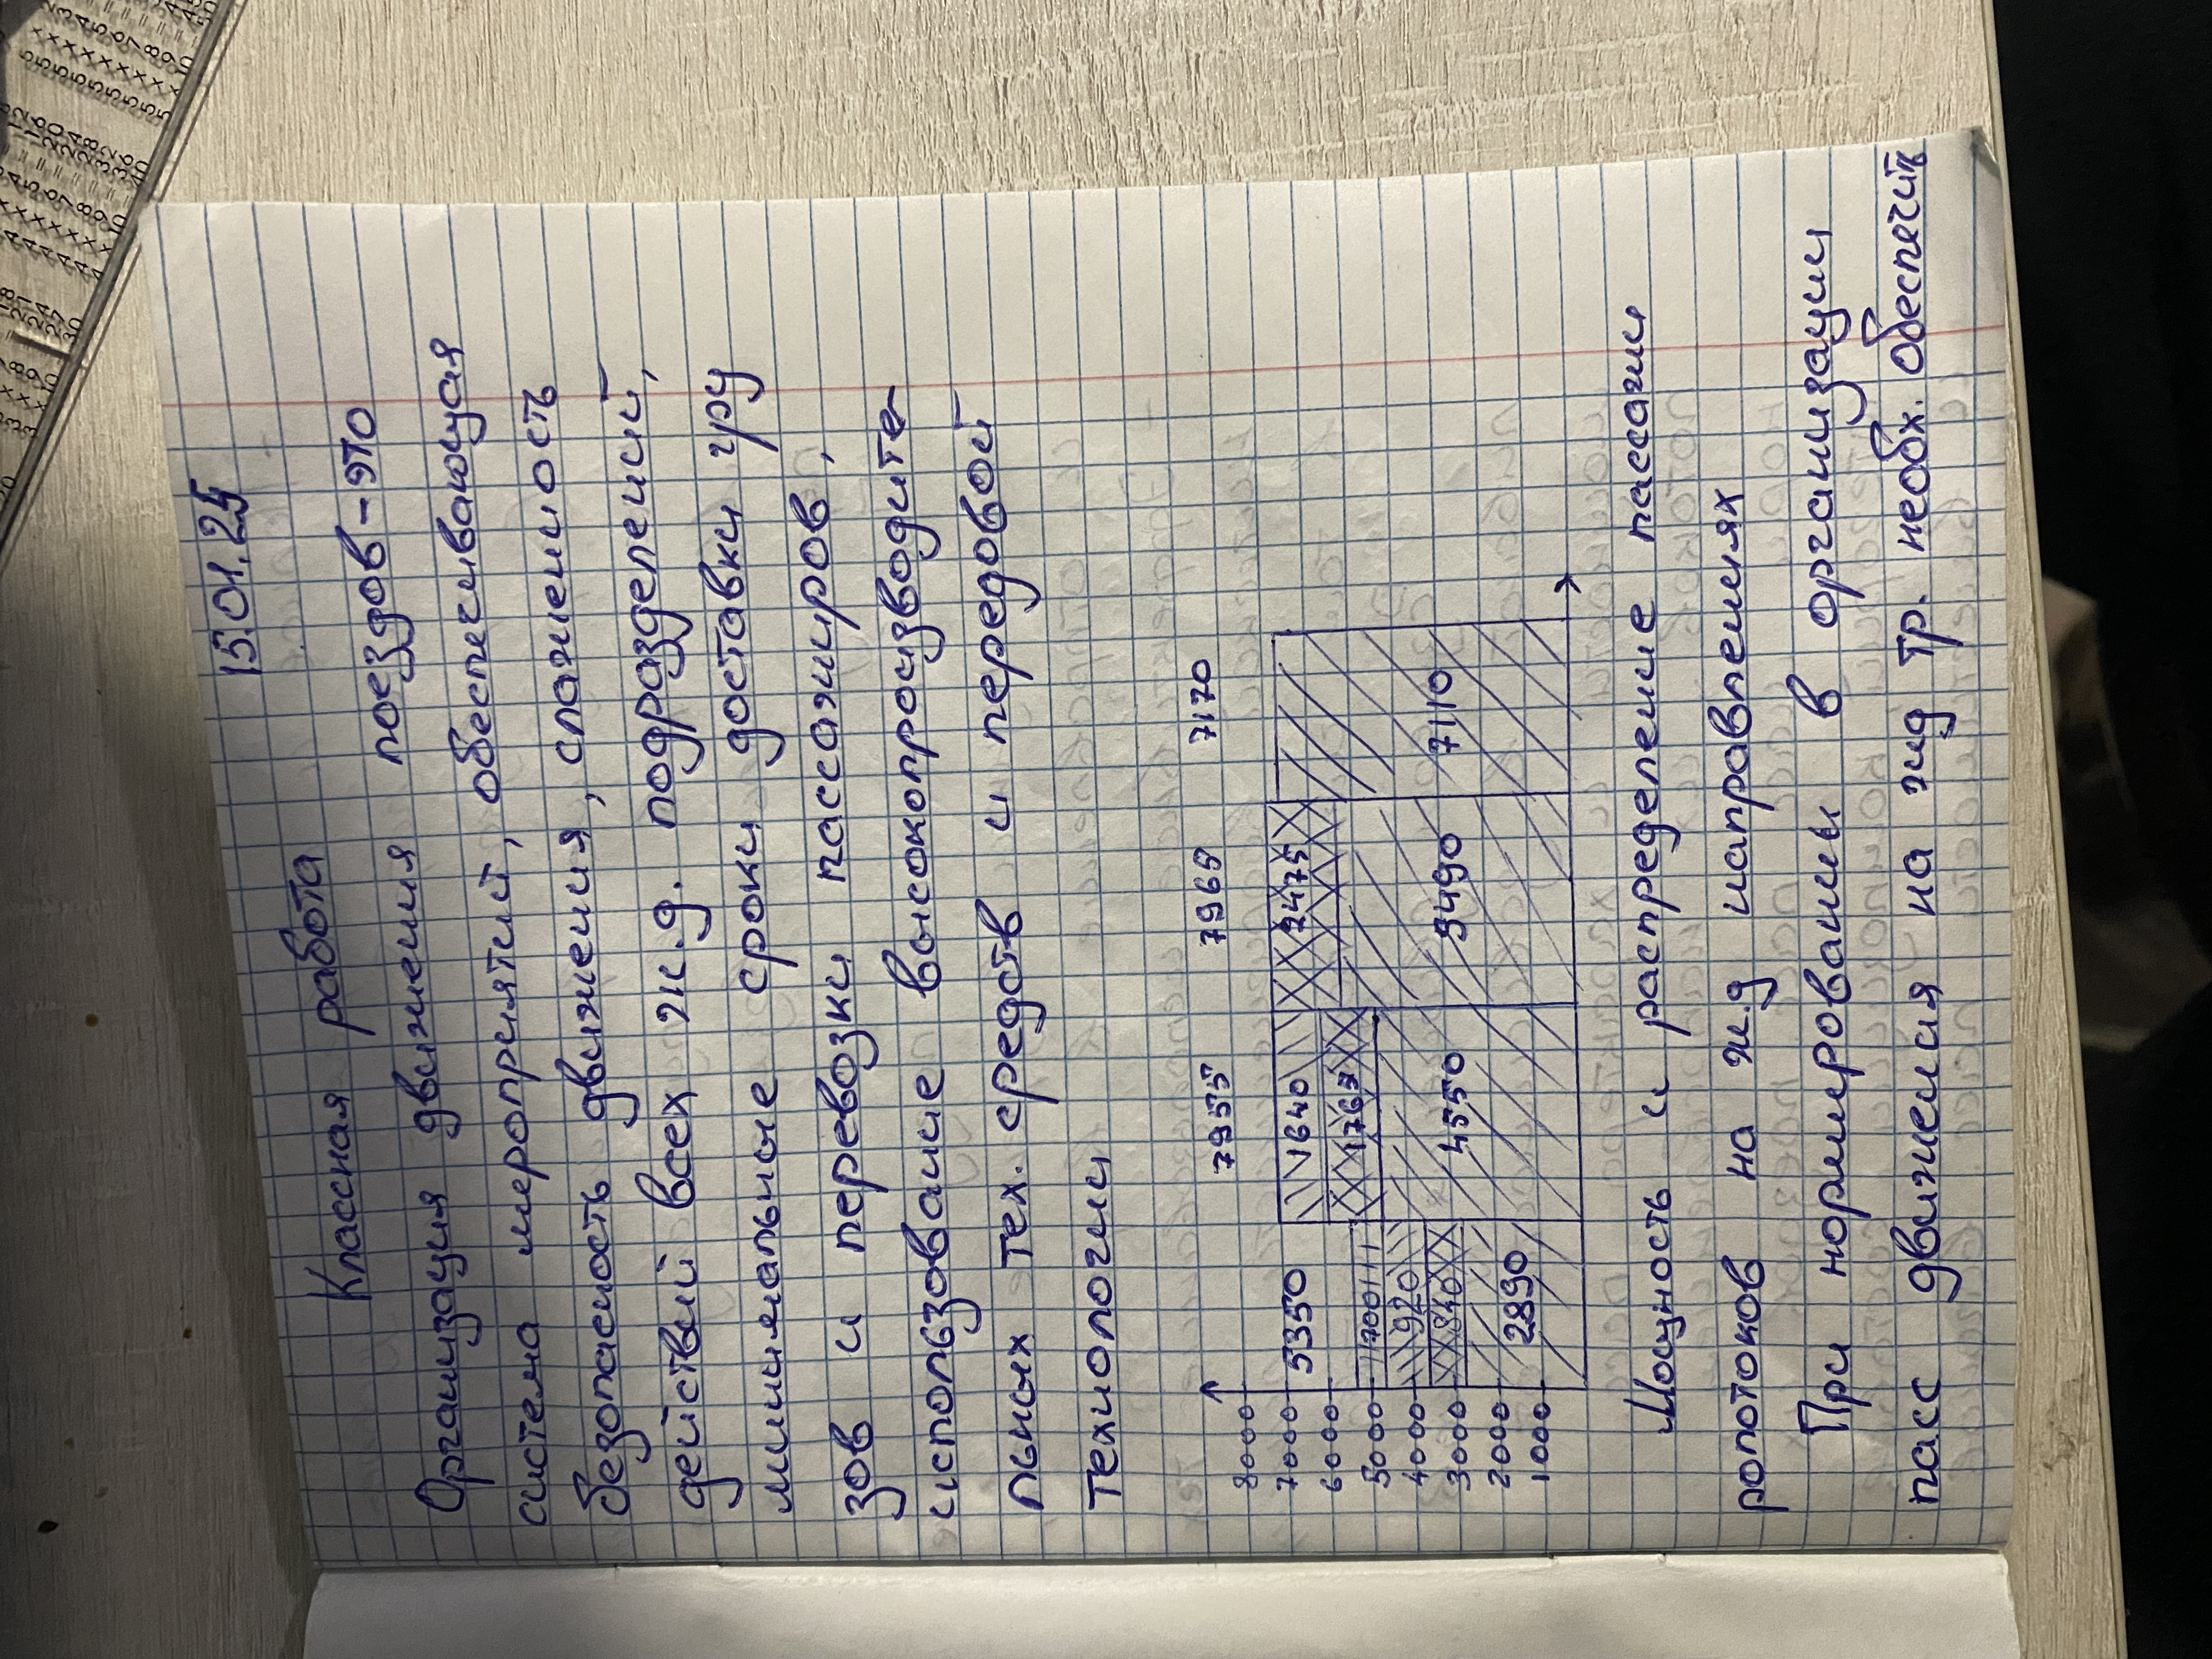 15.01.25
Классная работа
Организация движения поездов - это
система мероприятий, обеспечивающая
безопасность движения, слаженность
действий всех ж.д. подразделений,
минимальные сроки доставки гру
зов и перевозки пассажиров,
использование высокопроизводите
льных тех. средств и передовой
технологии
7955 7965 7170
80000
70000
60000
50000
40000
30000
20000
1000
5350
1700
920
840
2890
1640
1765
4550
2475
5490
7110
Мощность и распределение пассажи
ропотоков на ж.д направлениях
При нормировании в организации
пасс движения на жд тр. необх. обеспечить